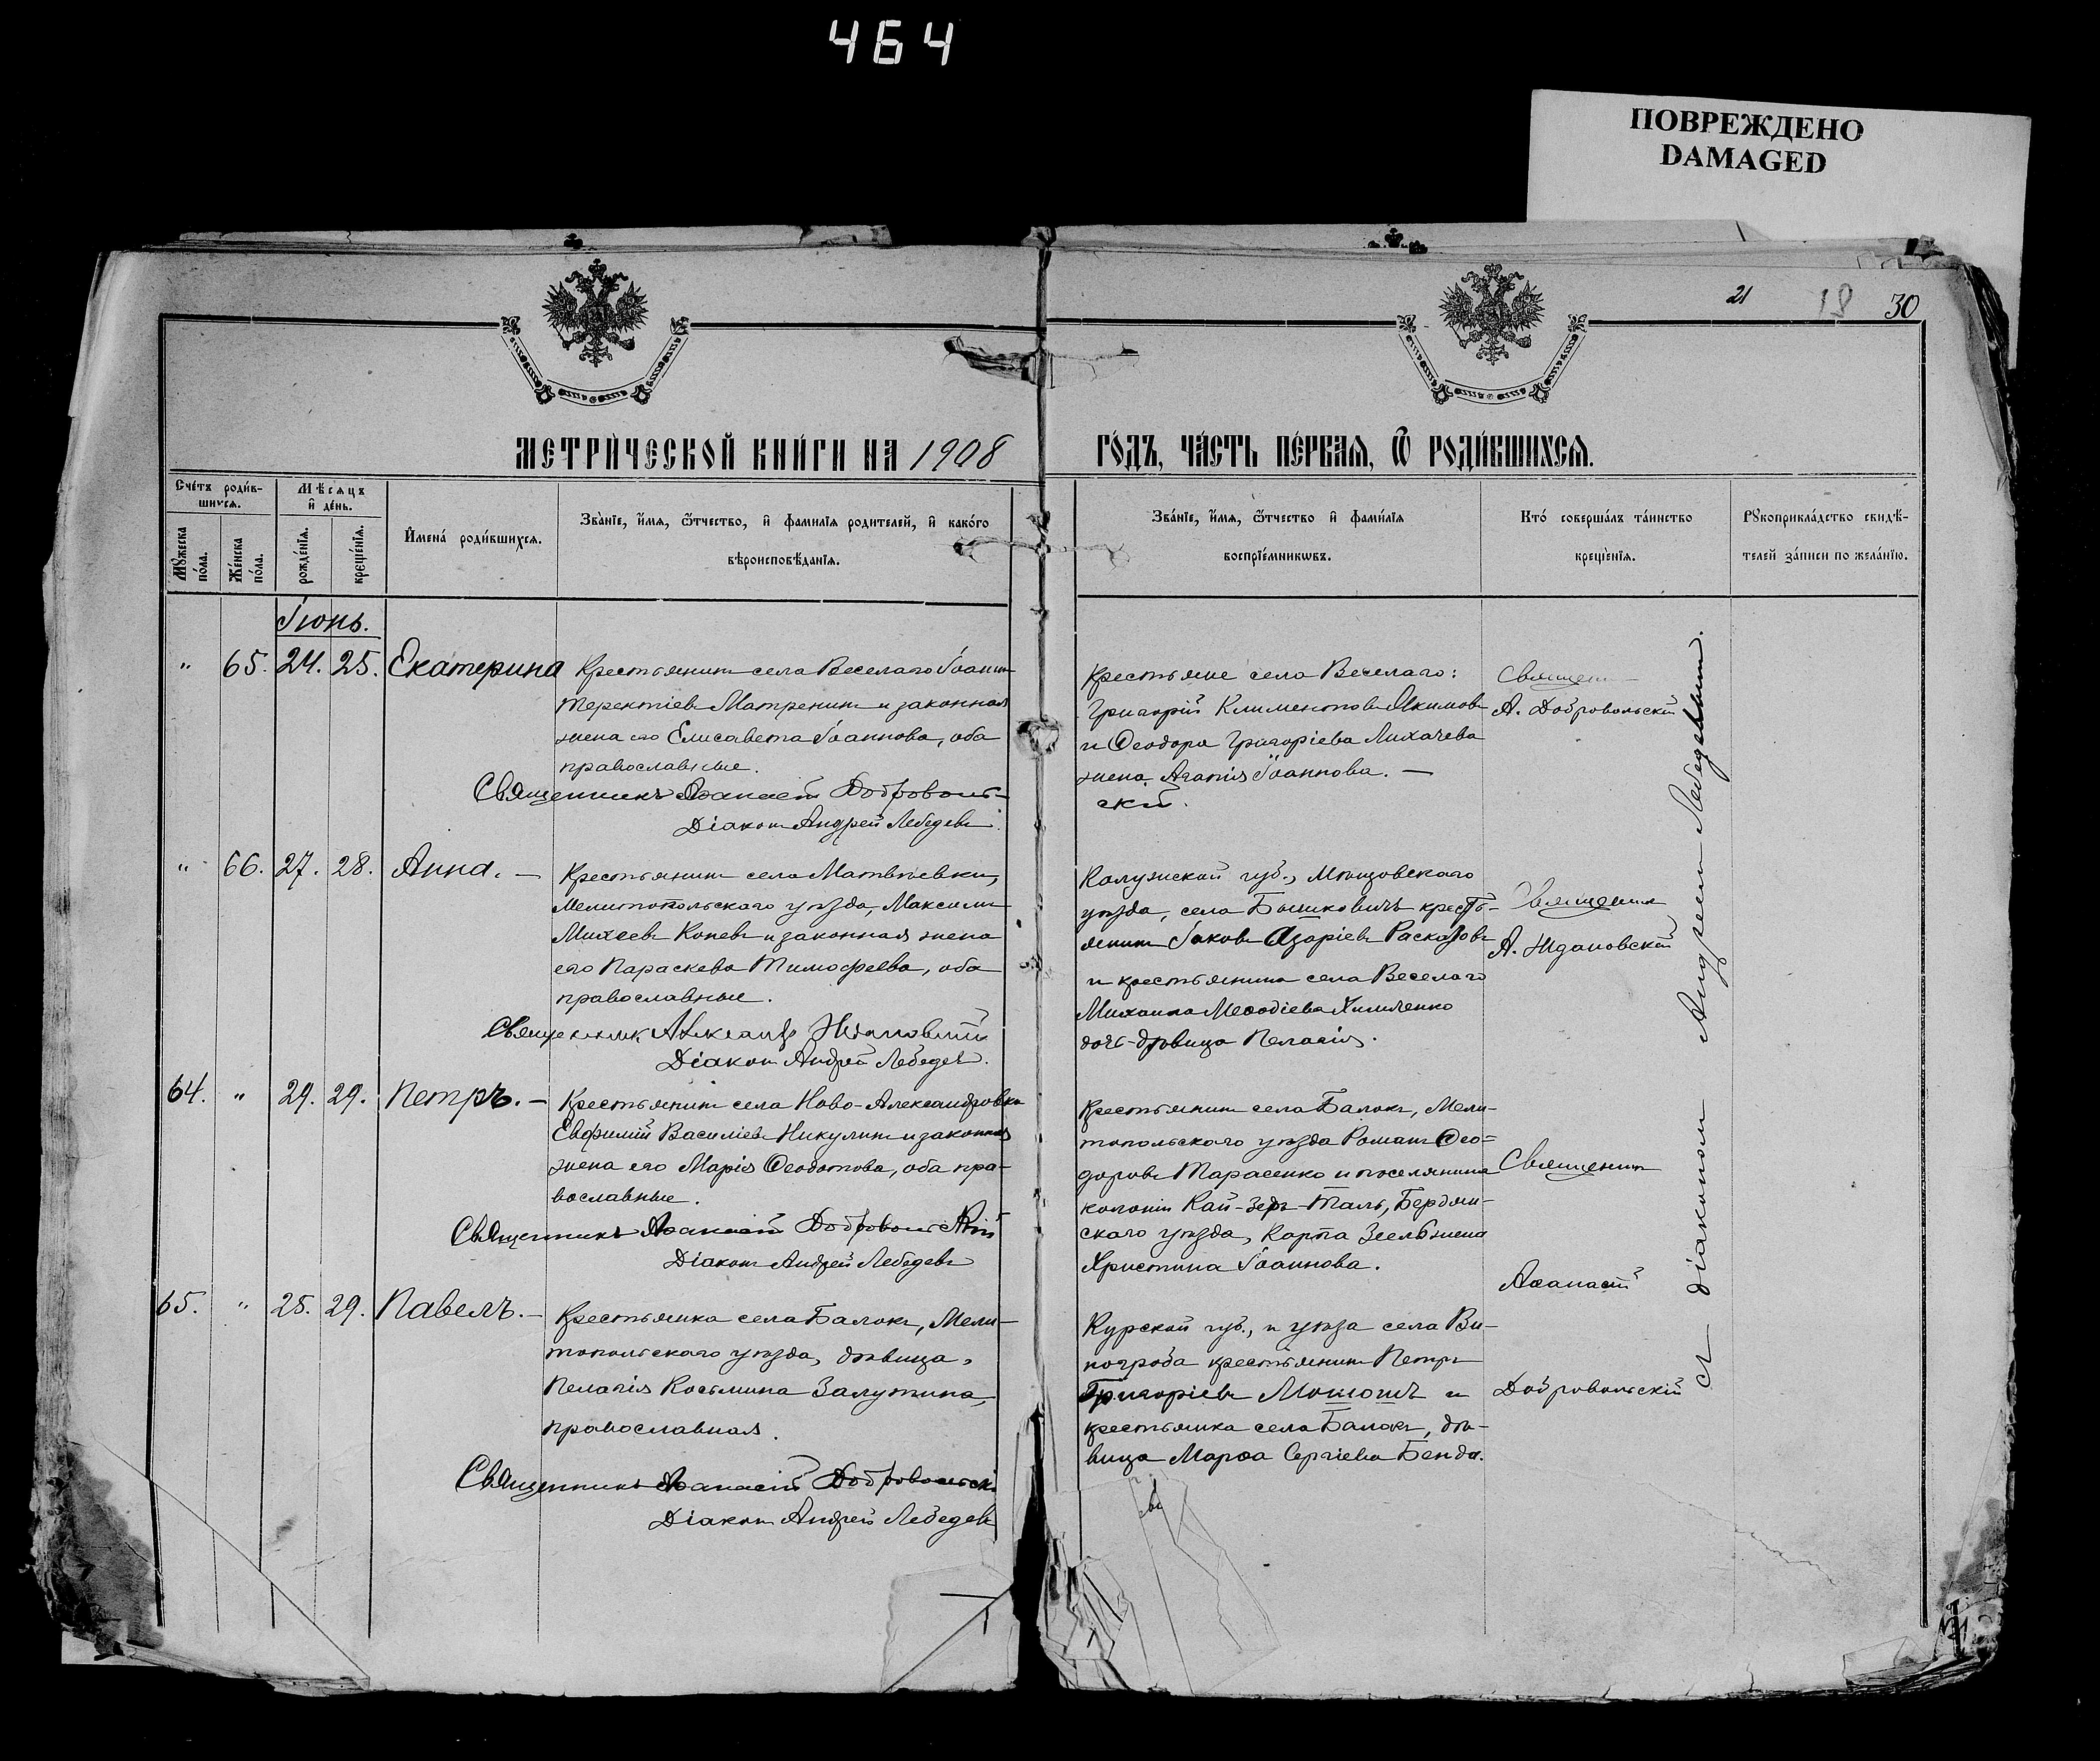 464
ПОВРЕЖДЕНО
DAMAGED
21 18 30
МЕТРИ́ЧЕСКОЙ КНИ́ГИ НА 1908 ГО́ДЪ, ЧА́СТЬ ПЕ́РВАЯ, Ѿ РОДИ́ВШИХСЯ.
Сче́тъ роди́в-
шихся.
Мꙋ́жеска по́ла.
Же́нска по́ла.
Мѣ́сяцъ
и҆ де́нь.
рожде́нїя.
креще́нїя.
И҆мена́ роди́вшихся.
Зва́нїе, и҆́мя, ѻ҆́тчество, и҆ фамилїя родителей, и҆ како́го
вѣроисповѣ́данїя.
Зва́нїе, и҆́мя, ѻ҆́тчество и҆ фами́лїя
воспрїе́мникѡвъ.
Кто́ соверша́лъ та́инство
креще́нїя.
Рꙋкоприкла́дство свидѣ́-
телей за́писи по жела́нїю.
Іюнь.
" 65. 24. 25. Екатерина
Крестьянинъ села Веселаго Іоаннъ
Терентіевъ Матренинъ и законная
жена его Елисавета Іоаннова, оба
православные.
Священникъ Аѳанасій Доброволь-
скій.
Діаконъ Андрей Лебедевъ.
Крестьяне села Веселаго:
Григорій Климентовъ Якимовъ
и Ѳеодора Григоріева Лихачева
жена Агапія Іоаннова. —
Священникъ
А. Добровольскій
" 66. 27. 28. Анна. —
Крестьянинъ села Матвѣевки,
Мелитопольскаго уѣзда, Максимъ
Михеевъ Коневъ и законная жена
его Параскева Тимофеева, оба
православные.
Священникъ Александръ Ждановскій
Діаконъ Андрей Лебедевъ.
Калужской губ., Мещовскаго
уѣзда, села Бышковичъ кресть-
янинъ Іаковъ Азаріевъ Расказовъ
и крестьянина села Веселаго
Михаила Меѳодіева Химченко
дочь-дѣвица Пелагія.
Священникъ
А. Ждановскій
64. " 29. 29. Петръ. —
Крестьянинъ села Ново-Александровки
Евфимій Василіевъ Никулинъ и законная
жена его Марія Ѳеодотова, оба пра-
вославные.
Священникъ Аѳанасій Добровольскій
Діаконъ Андрей Лебедевъ
Крестьянинъ села Балокъ, Мели-
топольскаго уѣзда Романъ Ѳео-
доровъ Тарасенко и поселянина
колоніи Кай-зеръ-Таль, Бердян-
скаго уѣзда, Карла Зеель жена
Христина Іоаннова.
Священникъ
65. " 25. 29. Павелъ. —
Крестьянка села Балокъ, Мели-
топольскаго уѣзда, дѣвица,
Пелагія Косьмина Залутина,
православная.
Священникъ Аѳанасій Добровольскі
Діаконъ Андрей Лебедевъ
Курской губ., и уѣзда села Ви-
ногроба крестьянинъ Петръ
Григоріевъ и
крестьянка села Балокъ, дѣ-
вица Марѳа Сергіева Бенда.
Аѳанасій
Добровольскій
съ діакономъ Андреемъ Лебедевымъ.